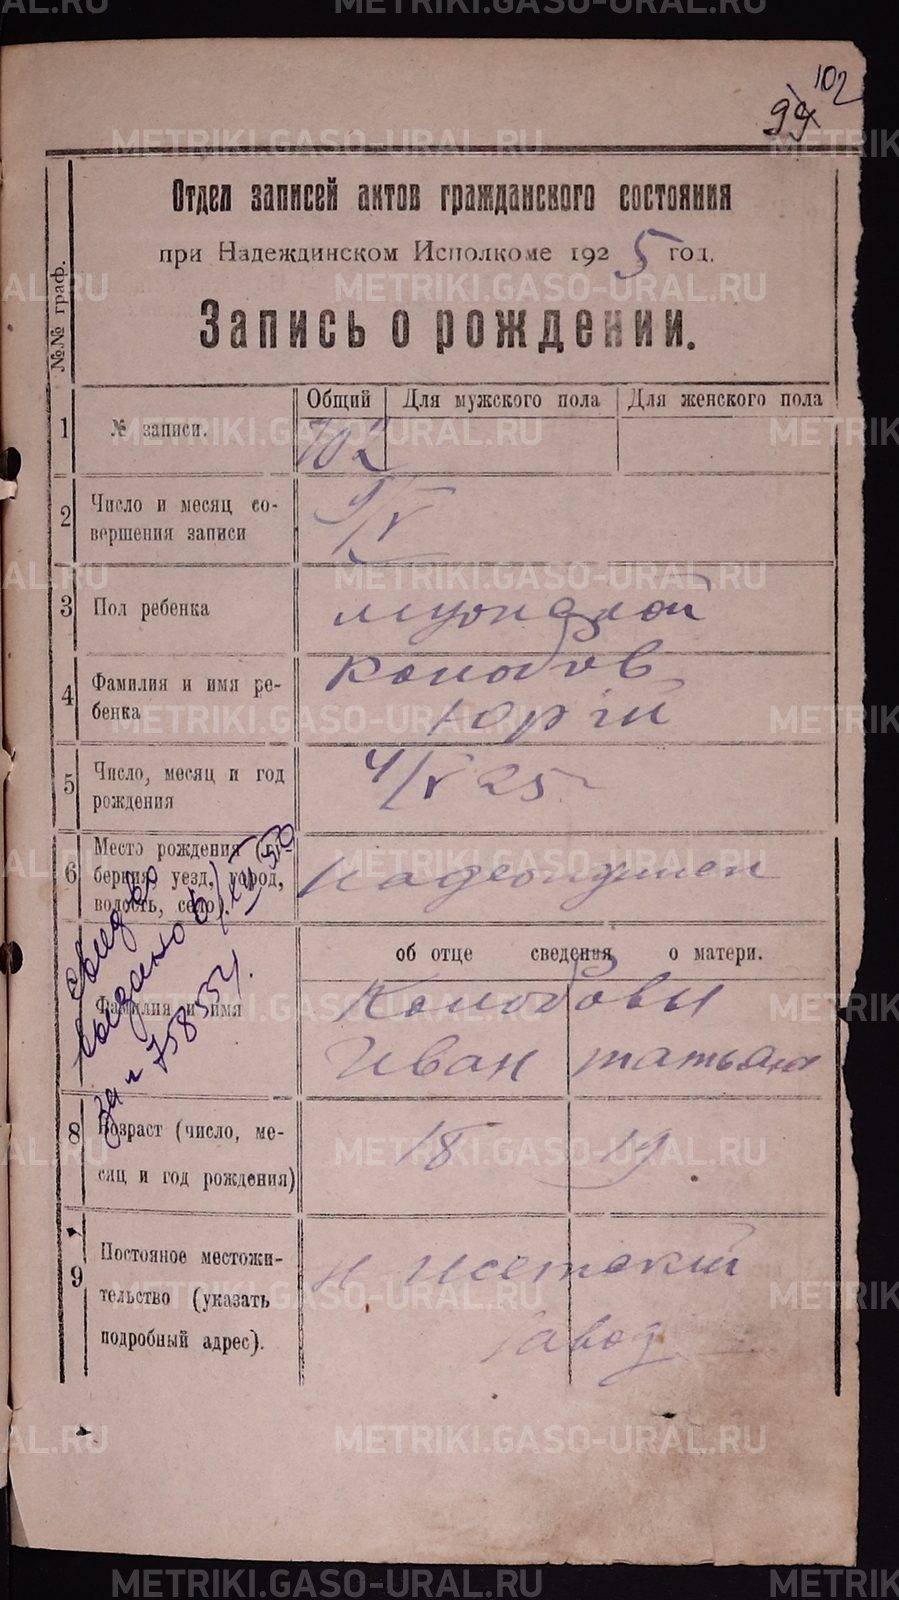 102
99
Отдел записей актов гражданского состояния
при Надеждинском Исполкоме 1925 год.
Запись о рождении.
№№ граф.
Общий Для мужского пола Для женского пола
1 № записи. 102
2 Число и месяц со-
вершения записи 9/V
3 Пол ребенка мужской
4 Фамилия и имя ре-
бенка
Юрий
5 Число, месяц и год
рождения 4/V 25
6 Место рождения
берния, уезд, город,
волость, село)
об отце сведения о матери.
Фамилия и имя
Иван Татьяна
8 Возраст (число, ме-
сяц и год рождения) 18 19
9 Постояное местожи-
тельство (указать
подробный адрес).
Н Исетский
завод
METRIKI.GASO-URAL.RU